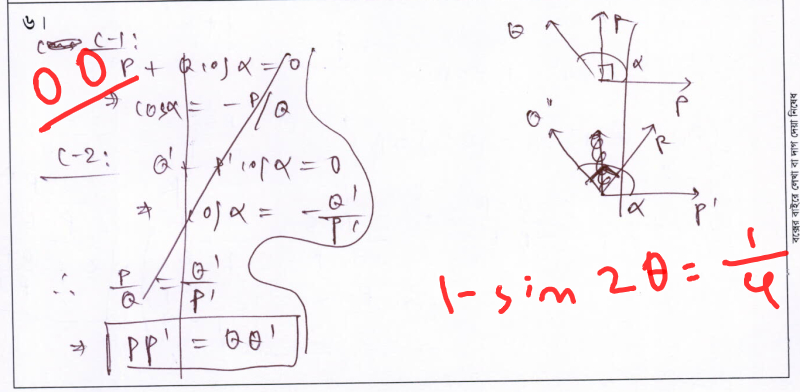 ৬।
C-1:
00
P + Q cosα = 0
⇒ cosα = - P/Q
C-2: Q' + P' cosα = 0
⇒ cosα = - Q'/P'
∴ P/Q = Q'/P'
⇒ PP' = QQ'
Q R α
P
Q' R
α P'
1-sin 2θ = 1/4
বক্সের বাইরে লেখা বা দাগ দেয়া নিষেধ